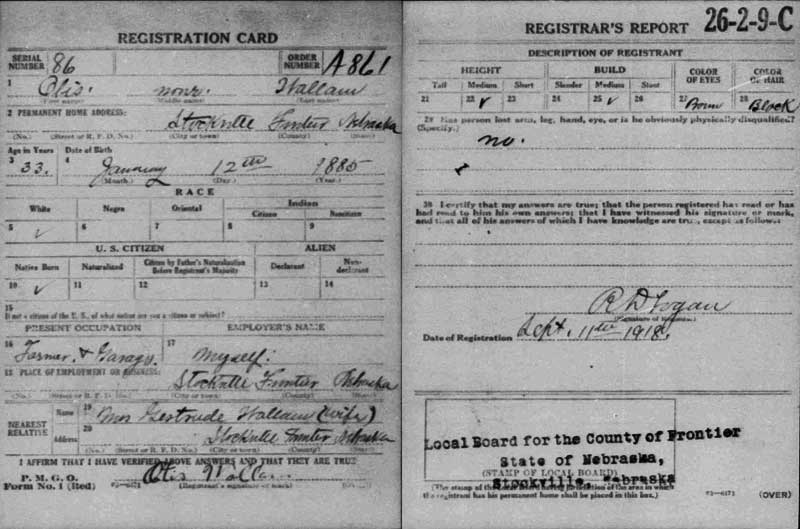 REGISTRATION CARD
SERIAL NUMBER 86 ORDER NUMBER A861
1 Otis. none. Hallam
(First name) (Middle name) (Last name)
2 PERMANENT HOME ADDRESS:
Stockville Frontier Nebraska
(No.) (Street or R. F. D. No.) (City or town) (County) (State)
Age in Years Date of Birth
3 33. 4 January 12th 1885
(Month.) (Day.) (Year.)
RACE
White Negro Oriental Indian
Citizen Noncitizen
5 ✓ 6 7 8 9
U. S. CITIZEN ALIEN
Native Born Naturalized Citizen by Father's Naturalization Before Registrant's Majority Declarant Non-declarant
10 ✓ 11 12 13 14
15
If not a citizen of the U. S., of what nation are you a citizen or subject?
PRESENT OCCUPATION EMPLOYER'S NAME
16 Farmer, & Garage 17 Myself.
18 PLACE OF EMPLOYMENT OR BUSINESS:
Stockville Frontier Nebraska
(No.) (Street or R. F. D. No.) (City or town) (County) (State)
NEAREST RELATIVE Name 19 Mrs Gertrude Hallam (wife)
Address 20 Stockville Frontier Nebraska
(No.) (Street or R. F. D. No.) (City or town) (County) (State)
I AFFIRM THAT I HAVE VERIFIED ABOVE ANSWERS AND THAT THEY ARE TRUE
P. M. G. O.
Form No. 1 (Red) Otis Hallam
(Registrant's signature or mark)
REGISTRAR'S REPORT 26-2-9-C
DESCRIPTION OF REGISTRANT
HEIGHT BUILD COLOR OF EYES COLOR OF HAIR
Tall Medium Short Slender Medium Stout
21 22 ✓ 23 24 25 ✓ 26 27 Brown 28 Black
29 Has person lost arm, leg, hand, eye, or is he obviously physically disqualified?
(Specify.) no.
30 I certify that my answers are true; that the person registered has read or has
had read to him his own answers; that I have witnessed his signature or mark,
and that all of his answers of which I have knowledge are true, except as follows:
R D Logan
(Signature of Registrar)
Date of Registration Sept. 11th 1918.
Local Board for the County of Frontier
State of Nebraska,
(STAMP OF LOCAL BOARD)
Stockville, Nebraska
(The stamp of the Local Board having jurisdiction of the area in which
the registrant has his permanent home shall be placed in this box.)
(OVER)